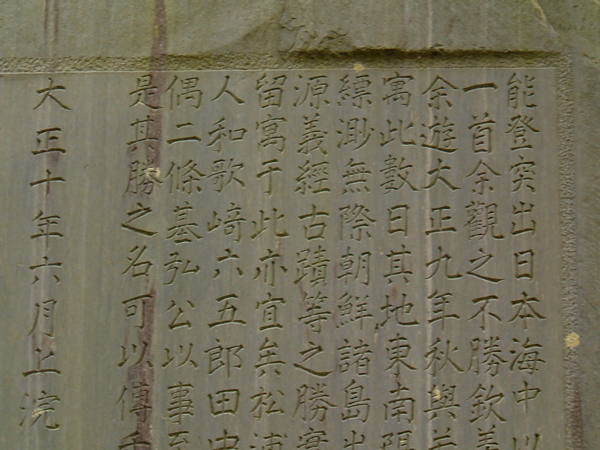 能登突出日本海中以
一首余觀之不勝欽羨
余遊大正九年秋與
寓此數日其地東南限
縹渺無際朝鮮諸島出
源義經古蹟等之勝實
留寓于此亦宜矣松浦
人和歌﨑六五郎田中
偶二條基弘公以事至
是其勝之名可以傳千
大正十年六月上浣